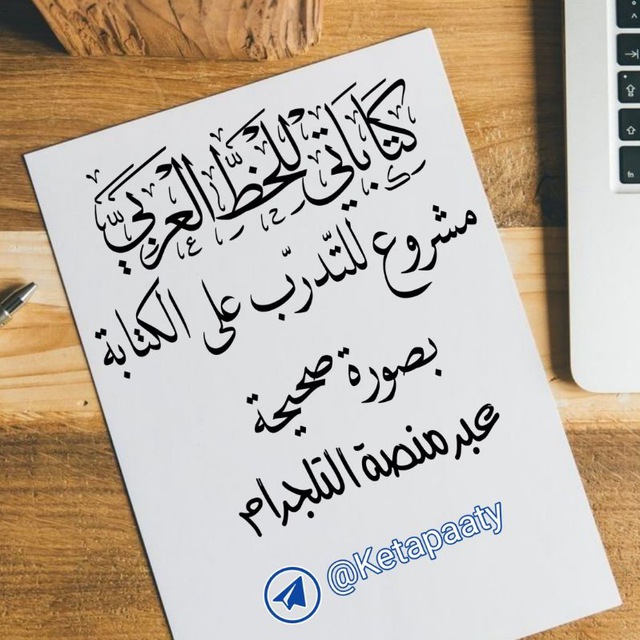 كتاباتي للخط العربي
مشروع للتدرّب على الكتابة
بصورة صحيحة
عبر منصة التلجرام
@Ketapaaty